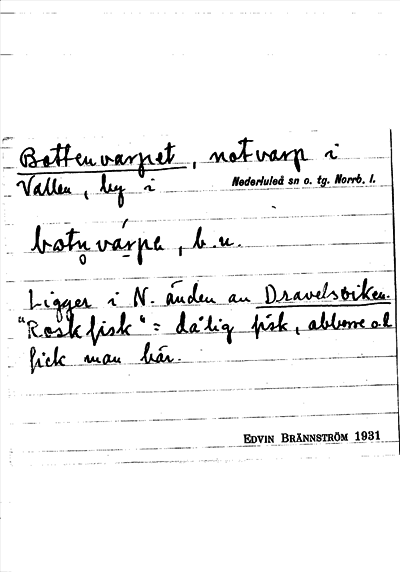 Bottenvarpet, notvarp i
Vallen, by i Nederluleå sn o. tg. Norrb. l.
botn̥ várpe, b. u.
Ligger i N. änden av Dravelsviken.
"Roskfisk" = dålig fisk, abborre o.d.
fick man här.
EDVIN BRÄNNSTRÖM 1931